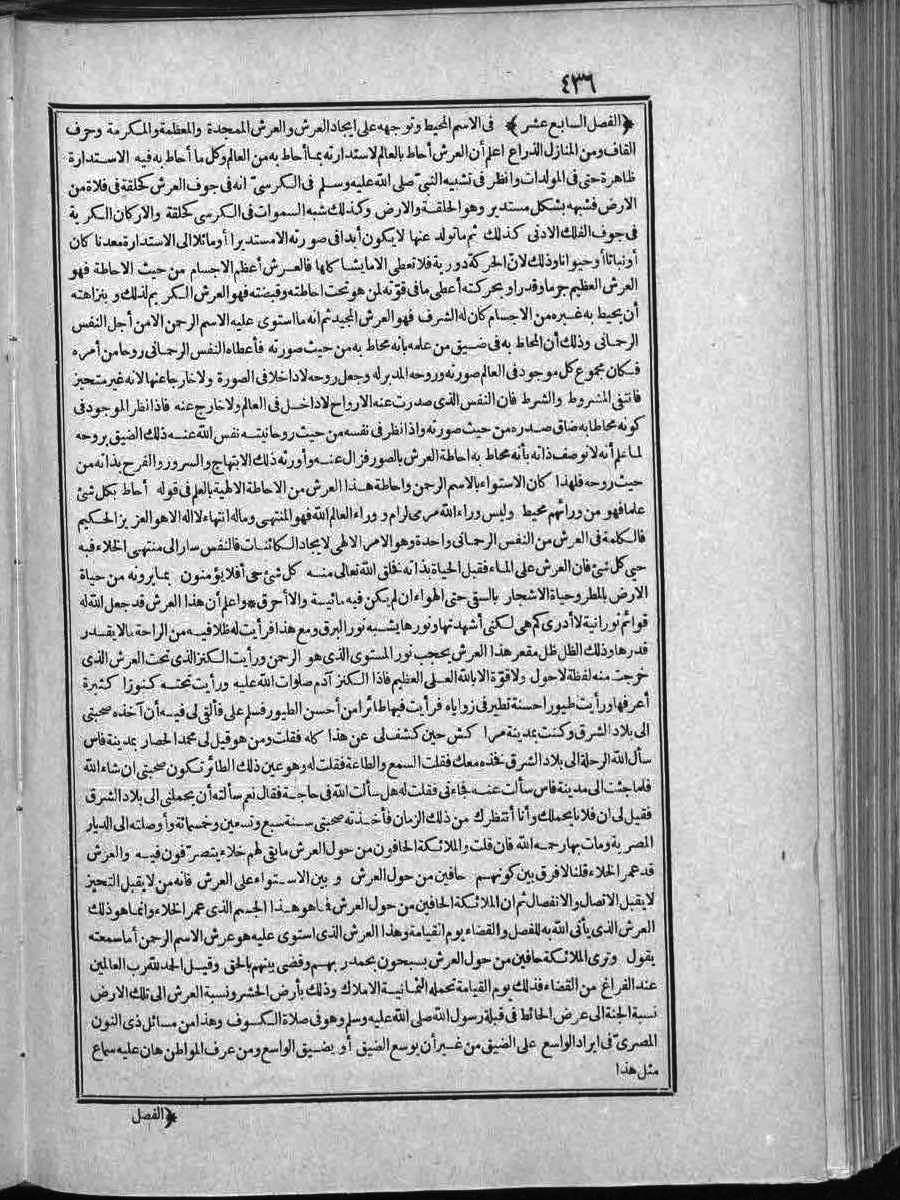 ٤٣٦
﴿الفصل السابع عشر﴾ فى الاسم المحيط وتوجهه على ايجاد العرش والعرش الممجدة والمعظمة والمكرمة وحرف
القاف ومن المنازل الذراع اعلم أن العرش أحاط بالعالم لاستدارته بما أحاط به من العالم وكل ما أحاط به فيه الاستدارة
ظاهرة حتى فى المولدات وانظر فى تشبيه النبىّ صلى الله عليه وسلم فى الكرسىّ انه فى جوف العرش كحلقة فى فلاة من
الارض فشبهه بشكل مستدير وهو الحلقة والارض وكذلك شبه السموات فى الكرسى كحلقة والاركان الكرية
فى جوف الفلك الادنى كذلك ثم ما تولد عنها لا يكون أبدا فى صورته الا مستديرا أو مائلا الى الاستدارة معدنا كان
أو نباتا أو حيوانا وذلك لانّ الحركة دورية فلا تعطى الا ما يشاكلها فالعرش أعظم الاجسام من حيث الاحاطة فهو
العرش العظيم جوما وقدرا وبحركته أعطى ما فى قوّته لمن هو تحت احاطته وقبضته فهو العرش الكريم لذلك وبنزاهته
أن يحيط به غيره من الاجسام كان له الشرف فهو العرش المجيد ثم انه ما استوى عليه الاسم الرحمن الا من أجل النفس
الرحمانى وذلك أن المحاط به فى ضيق من علمه بأنه محاط به من حيث صورته فأعطاه النفس الرحمانى روحا من أمره
فكان مجموع كل موجود فى العالم صورته وروحه المدبر له وجعل روحه لا داخلا فى الصورة ولا خارجا عنها لانه غير متحيز
فانتفى المشروط والشرط فان النفس الذى صدرت عنه الارواح لا داخل فى العالم ولا خارج عنه فاذا نظر الموجود فى
كونه محاطا به ضاق صدره من حيث صورته واذا نظر فى نفسه من حيث روحانيته نفس الله عنه ذلك الضيق بروحه
لما علم أنه لا توصف ذاته بأنه محاط به احاطة العرش بالصور فزال عنه وأورثه ذلك الابتهاج والسرور والفرح بذاته من
حيث روحه فلهذا كان الاستواء بالاسم الرحمن واحاطة هذا العرش من الاحاطة الالهية بالعلم فى قوله أحاط بكل شئ
علما فهو من ورائهم محيط وليس وراء الله مرمى لرام و وراء العالم الله فهو المنتهى وما له انتهاء لا اله الا هو العزيز الحكيم
فالكلمة فى العرش من النفس الرحمانى واحدة وهو الامر الالهى لايجاد الكائنات فالنفس سار الى منتهى الخلاء فبه
حيى كل شئ فان العرش على الماء فقبل الحياة بذاته فخلق الله تعالى منه كل شئ حى أفلا يؤمنون بما يرونه من حياة
الارض بالمطر وحياة الاشجار بالسقى حتى الهواء ان لم يكن فيه مائية والا أحرق * واعلم أن هذا العرش قد جعل الله له
قوائم نورانية لا أدرى كم هى لكنى أشهدتها ونورها يشبه نور البرق ومع هذا فرأيت له ظلا فيه من الراحة ما لا يقدر
قدرها وذلك الظل ظل مقعر هذا العرش يحجب نور المستوى الذى هو الرحمن ورأيت الكنز الذى تحت العرش الذى
خرجت منه لفظة لا حول ولا قوّة الا بالله العلى العظيم فاذا الكنز آدم صلوات الله عليه ورأيت تحته كنوزا كثيرة
أعرفها ورأيت طيورا حسنة تطير فى زواياه فرأيت فيها طائرا من أحسن الطيور فسلم علىّ فألقى لى فيه أن آخذه صحبتى
الى بلاد الشرق وكنت بمدينة مراكش حين كشف لى عن هذا كله فقلت ومن هو قيل لى محمد الحصار بمدينة فاس
سأل الله الرحلة الى بلاد الشرق فخذه معك فقلت السمع والطاعة فقلت له وهو عين ذلك الطائر تكون صحبتى ان شاء الله
فلما جئت الى مدينة فاس سألت عنه فجاءنى فقلت له هل سألت الله فى حاجة فقال نعم سألته أن يحملنى الى بلاد الشرق
فقيل لى ان فلانا يحملك وأنا أنتظرك من ذلك الزمان فأخذته صحبتى سنة سبع وتسعين وخمسمائة وأوصلته الى الديار
المصرية ومات بها رحمه الله فان قلت والملائكة الحافون من حول العرش ما بقى لهم خلاء يتصرّفون فيه والعرش
قد عمر الخلاء قلنا لا فرق بين كونهم حافين من حول العرش و بين الاستواء على العرش فانه من لا يقبل التحيز
لا يقبل الاتصال والانفصال ثم ان الملائكة الحافين من حول العرش فما هو هذا الجسم الذى عمر الخلاء وانما هو ذلك
العرش الذى يأتى الله به للفصل والقضاء يوم القيامة وهذا العرش الذى استوى عليه هو عرش الاسم الرحمن أما سمعته
يقول وترى الملائكة حافين من حول العرش يسبحون بحمد ربهم وقضى بينهم بالحق وقيل الحمد لله رب العالمين
عند الفراغ من القضاء فذلك يوم القيامة تحمله الثمانية الاملاك وذلك بأرض الحشر ونسبة العرش الى تلك الارض
نسبة الجنة الى عرض الحائط فى قبلة رسول الله صلى الله عليه وسلم وهو فى صلاة الكسوف وهذا من مسائل ذى النون
المصرىّ فى ايراد الواسع على الضيق من غير أن يوسع الضيق أو يضيق الواسع ومن عرف المواطن هان عليه سماع
مثل هذا
﴿الفصل